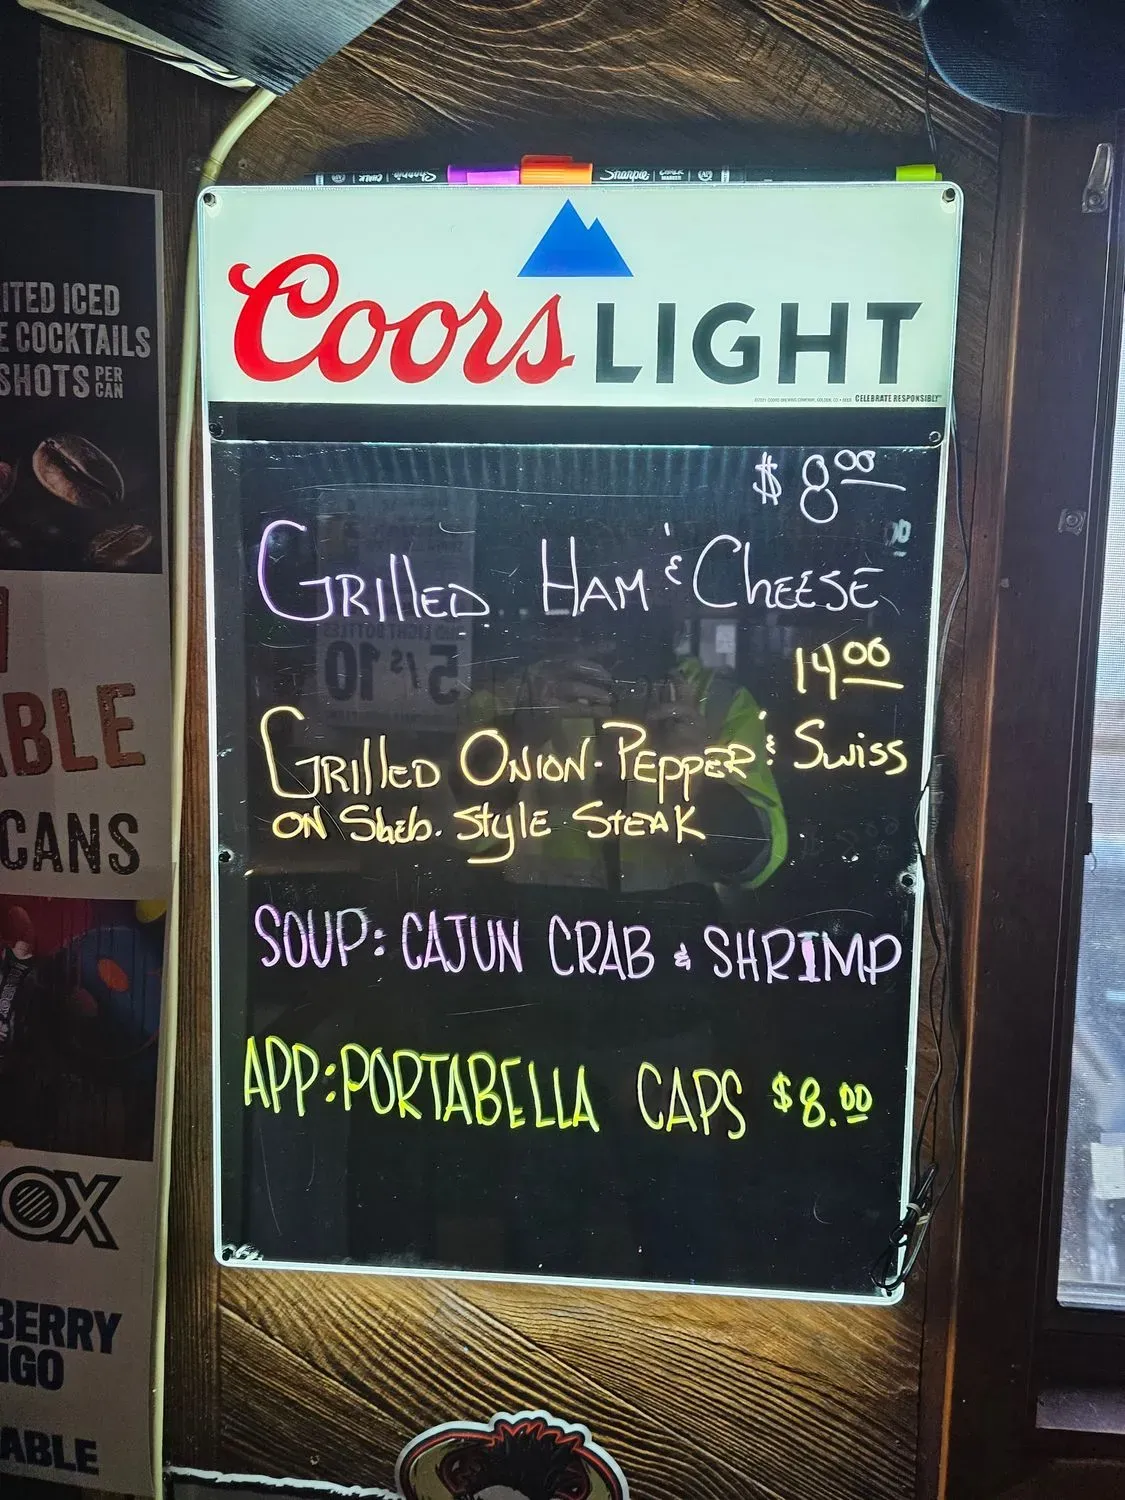 Sharpie
Sharpie
ITED ICED
E COCKTAILS
SHOTS PER CAN
Coors LIGHT
CELEBRATE RESPONSIBLY
$ 8.00
GRIllED HAM & CheESE
14.00
GRIllED ONION-PEPPER & Swiss
ON Sheb. Style STEAK
SOUP: CAJUN CRAB & SHRIMP
APP: PORTABELLA CAPS $8.00
ABLE
CANS
OX
BERRY
GO
ABLE
5/$10